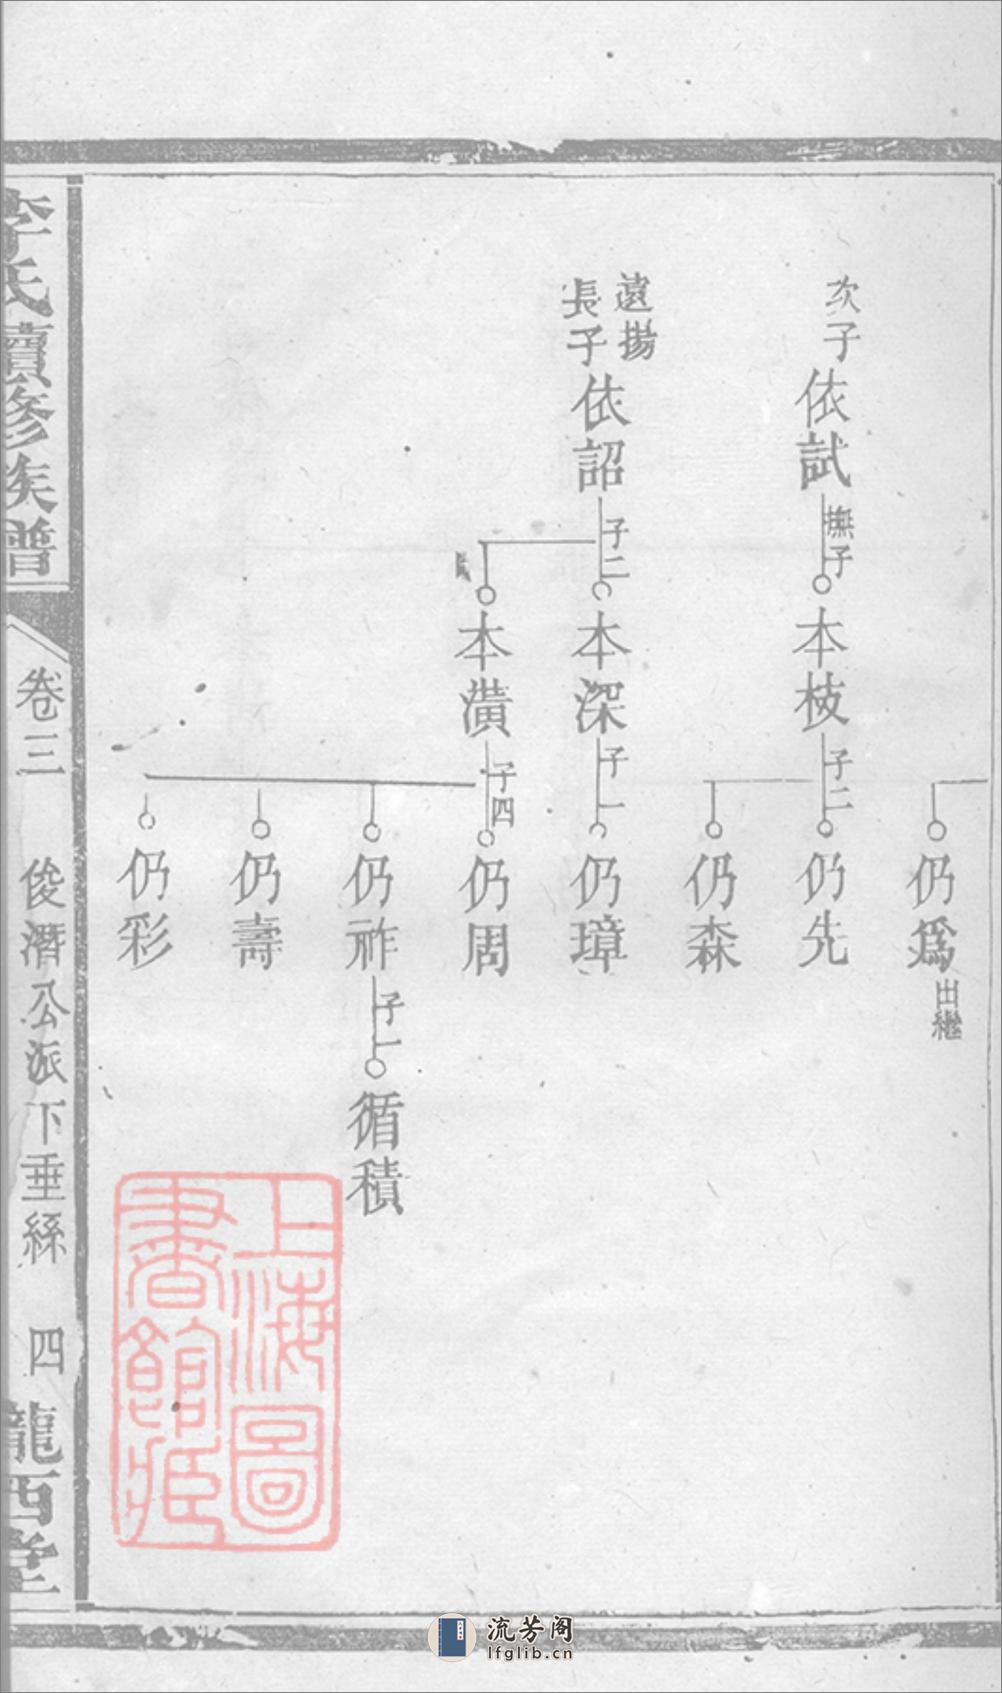 仍爲
出繼
次子
依試
撫子
本枝
子二
仍先
仍森
遠揚
長子
依詔
子二
本深
子一
仍璋
本潢
子四
仍周
仍祚
子一
循積
仍壽
仍彩
李氏續修族譜
卷三
俊潛公派下垂絲
四
龍西堂
上海圖
書館藏
流芳阁
lfglib.cn